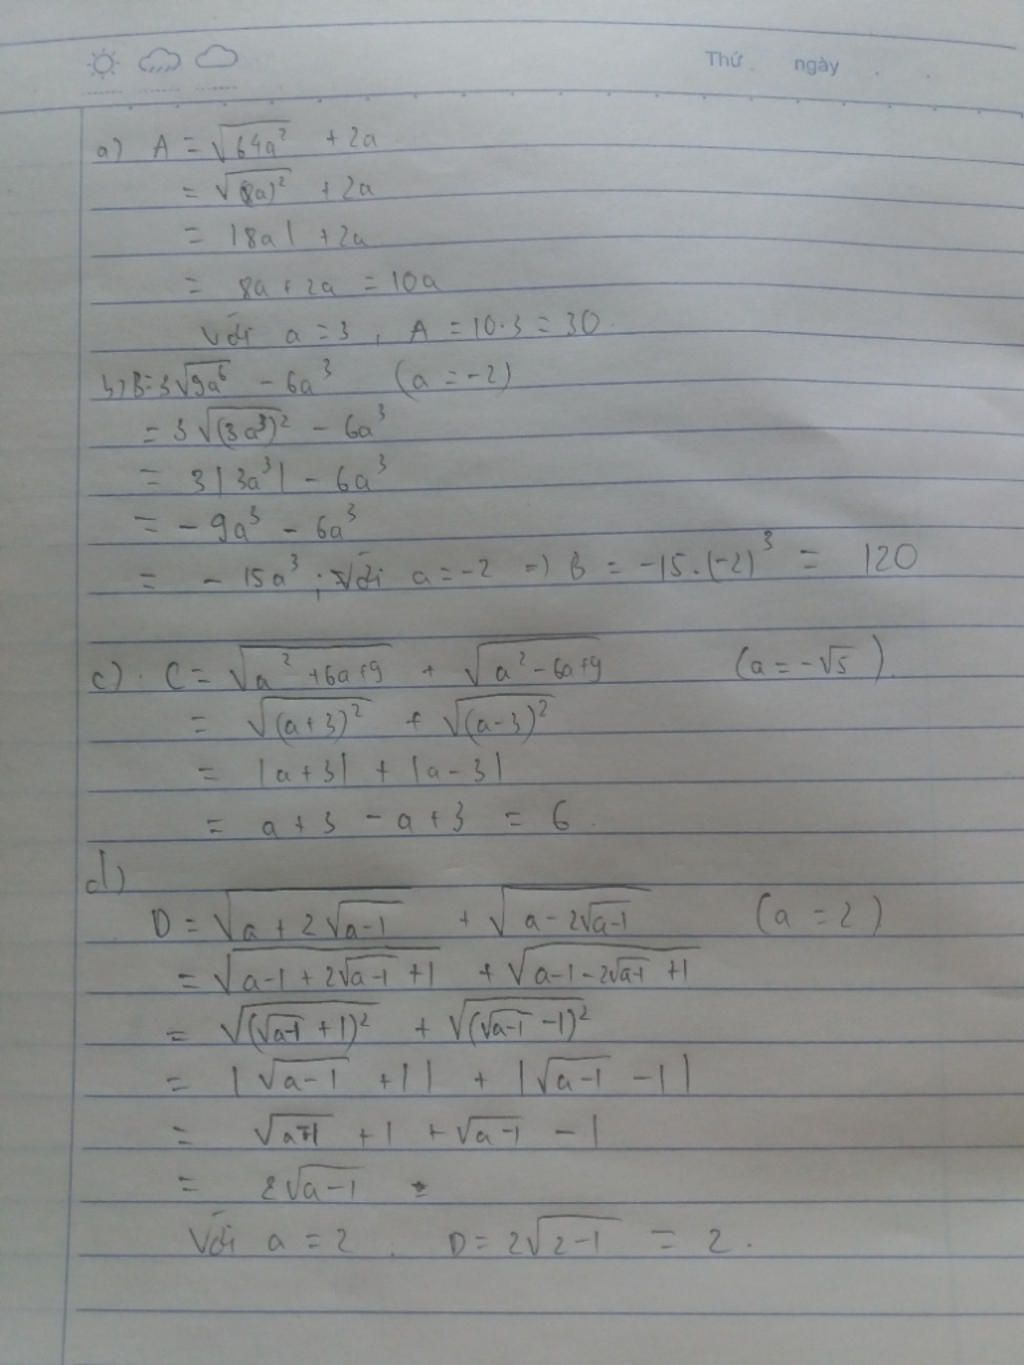 Thứ ngày
a) A = √64a² + 2a
= √(8a)² + 2a
= |8a| + 2a
= 8a + 2a = 10a
Với a = 3, A = 10.3 = 30.
b) B = 3√9a⁶ - 6a³ (a = -2)
= 3√(3a³)² - 6a³
= 3|3a³| - 6a³
= -9a³ - 6a³
= -15a³; Với a = -2 => B = -15.(-2)³ = 120
c). C = √a²+6a+9 + √a²-6a+9 (a = -√5)
= √(a+3)² + √(a-3)²
= |a+3| + |a-3|
= a+3 - a+3 = 6.
d)
D = √a + 2√a-1 + √a - 2√a-1 (a = 2)
= √a-1 + 2√a-1 + 1 + √a-1 - 2√a-1 + 1
= √(√a-1 + 1)² + √(√a-1 - 1)²
= |√a-1 + 1| + |√a-1 - 1|
= √a-1 + 1 + √a-1 - 1
= 2√a-1
Với a = 2. D = 2√2-1 = 2.